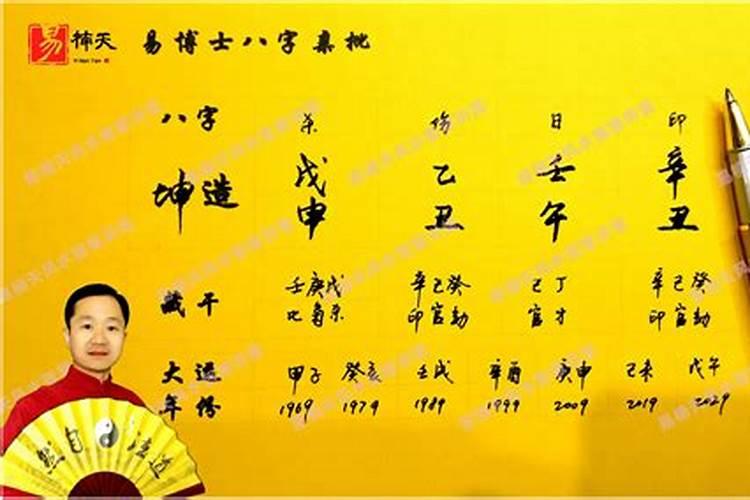 易 楠天 易博士八字集批
八字 杀 伤 日 印
坤造 戊申 乙丑 壬午 辛丑
藏干 壬庚戊 辛己癸 己丁 辛己癸
比枭杀 印官劫 官才 印官劫
大运 甲子 癸亥 壬戌 辛酉 庚申 己未 戊午
年份 1969 1979 1989 1999 2009 2019 2029
然自法道